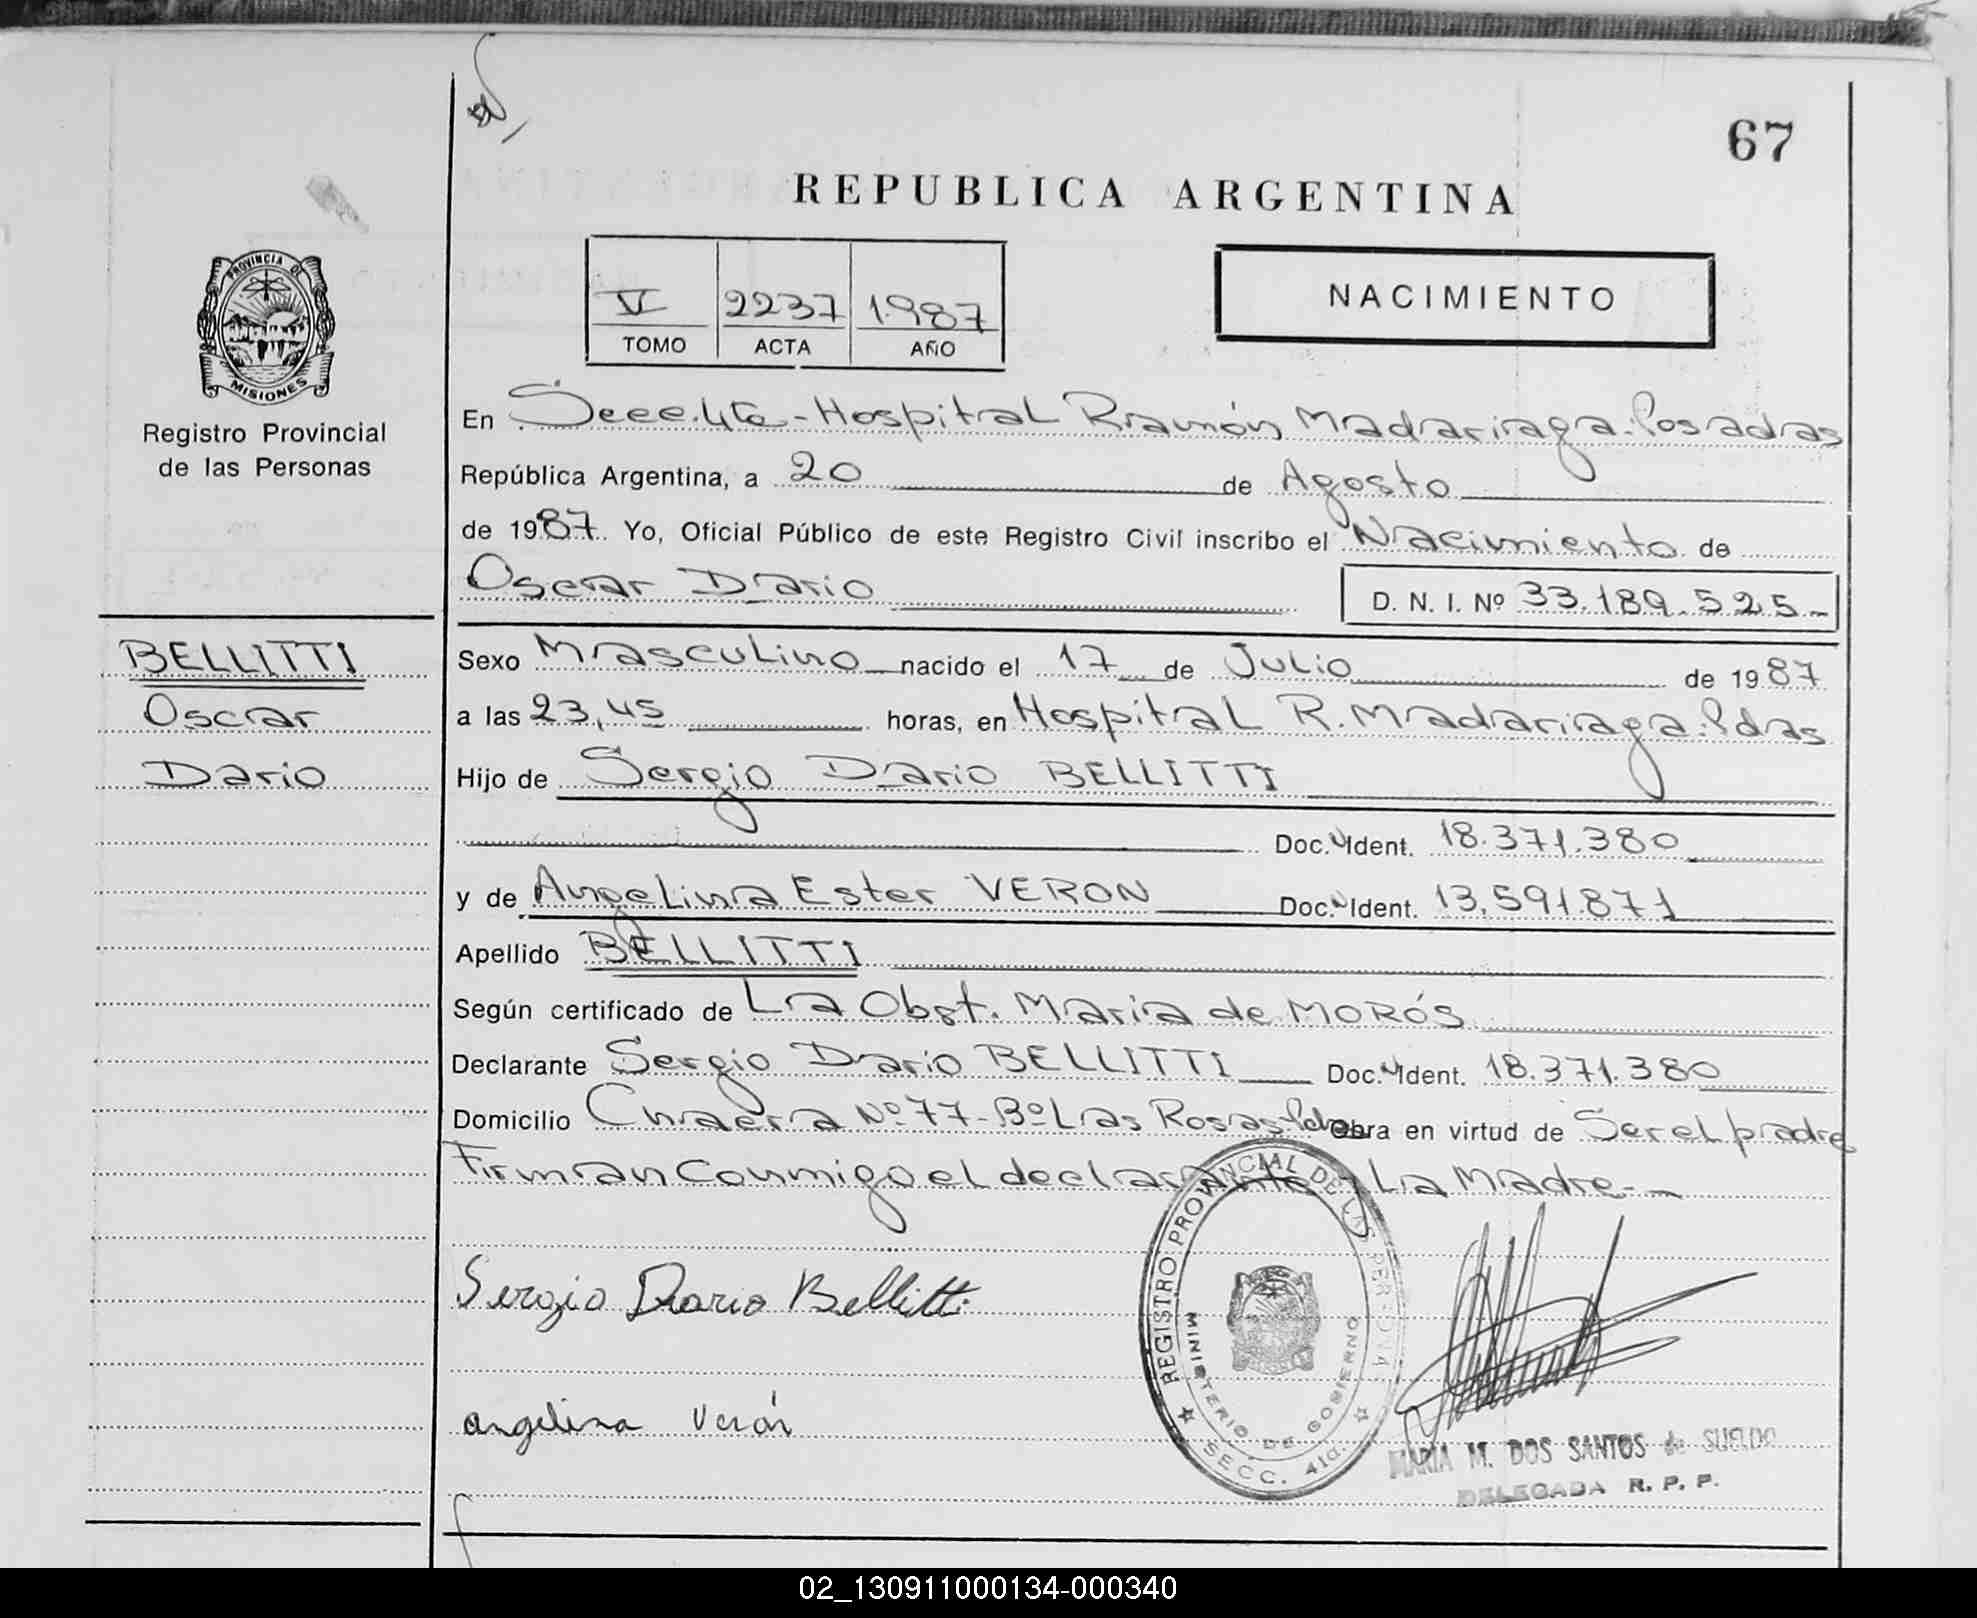 67
REPUBLICA ARGENTINA
PROVINCIA DE
MISIONES
Registro Provincial
de las Personas
V 2237 1987
TOMO ACTA AÑO
NACIMIENTO
En Secc. 4ta - Hospital Ramón Madariaga. Posadas
República Argentina, a 20 de Agosto
de 1987. Yo, Oficial Público de este Registro Civil inscribo el Nacimiento de
Oscar Dario D. N. I. Nº 33.189.525.-
BELLITTI
Oscar
Dario
Sexo Masculino nacido el 17 de Julio de 1987
a las 23,45 horas, en Hospital R. Madariaga. Pdas
Hijo de Sergio Dario BELLITTI
Doc. Ident. 18.371.380
y de Angelina Ester VERON Doc. Ident. 13.591.871
Apellido BELLITTI
Según certificado de La Obst. Maria de MORÓS
Declarante Sergio Dario BELLITTI Doc. Ident. 18.371.380
Domicilio Nº 77 - Bº Las Rosas Pdas Obra en virtud de Ser el padre
Firman Conmigo el declarante y La Madre.-
Sergio Dario Bellitti
angelina Verón
REGISTRO PROVINCIAL DE LAS PERSONAS
MINISTERIO DE GOBIERNO
SECC. 4ta.
MARIA M. DOS SANTOS de SUELDO
DELEGADA R. P. P.
02_130911000134-000340